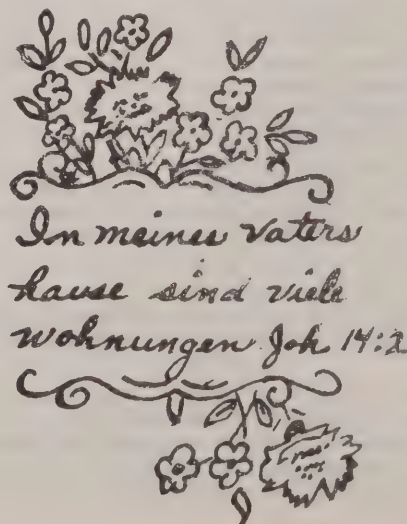 In meines vaters
hause sind viele
wohnungen Joh 14:2